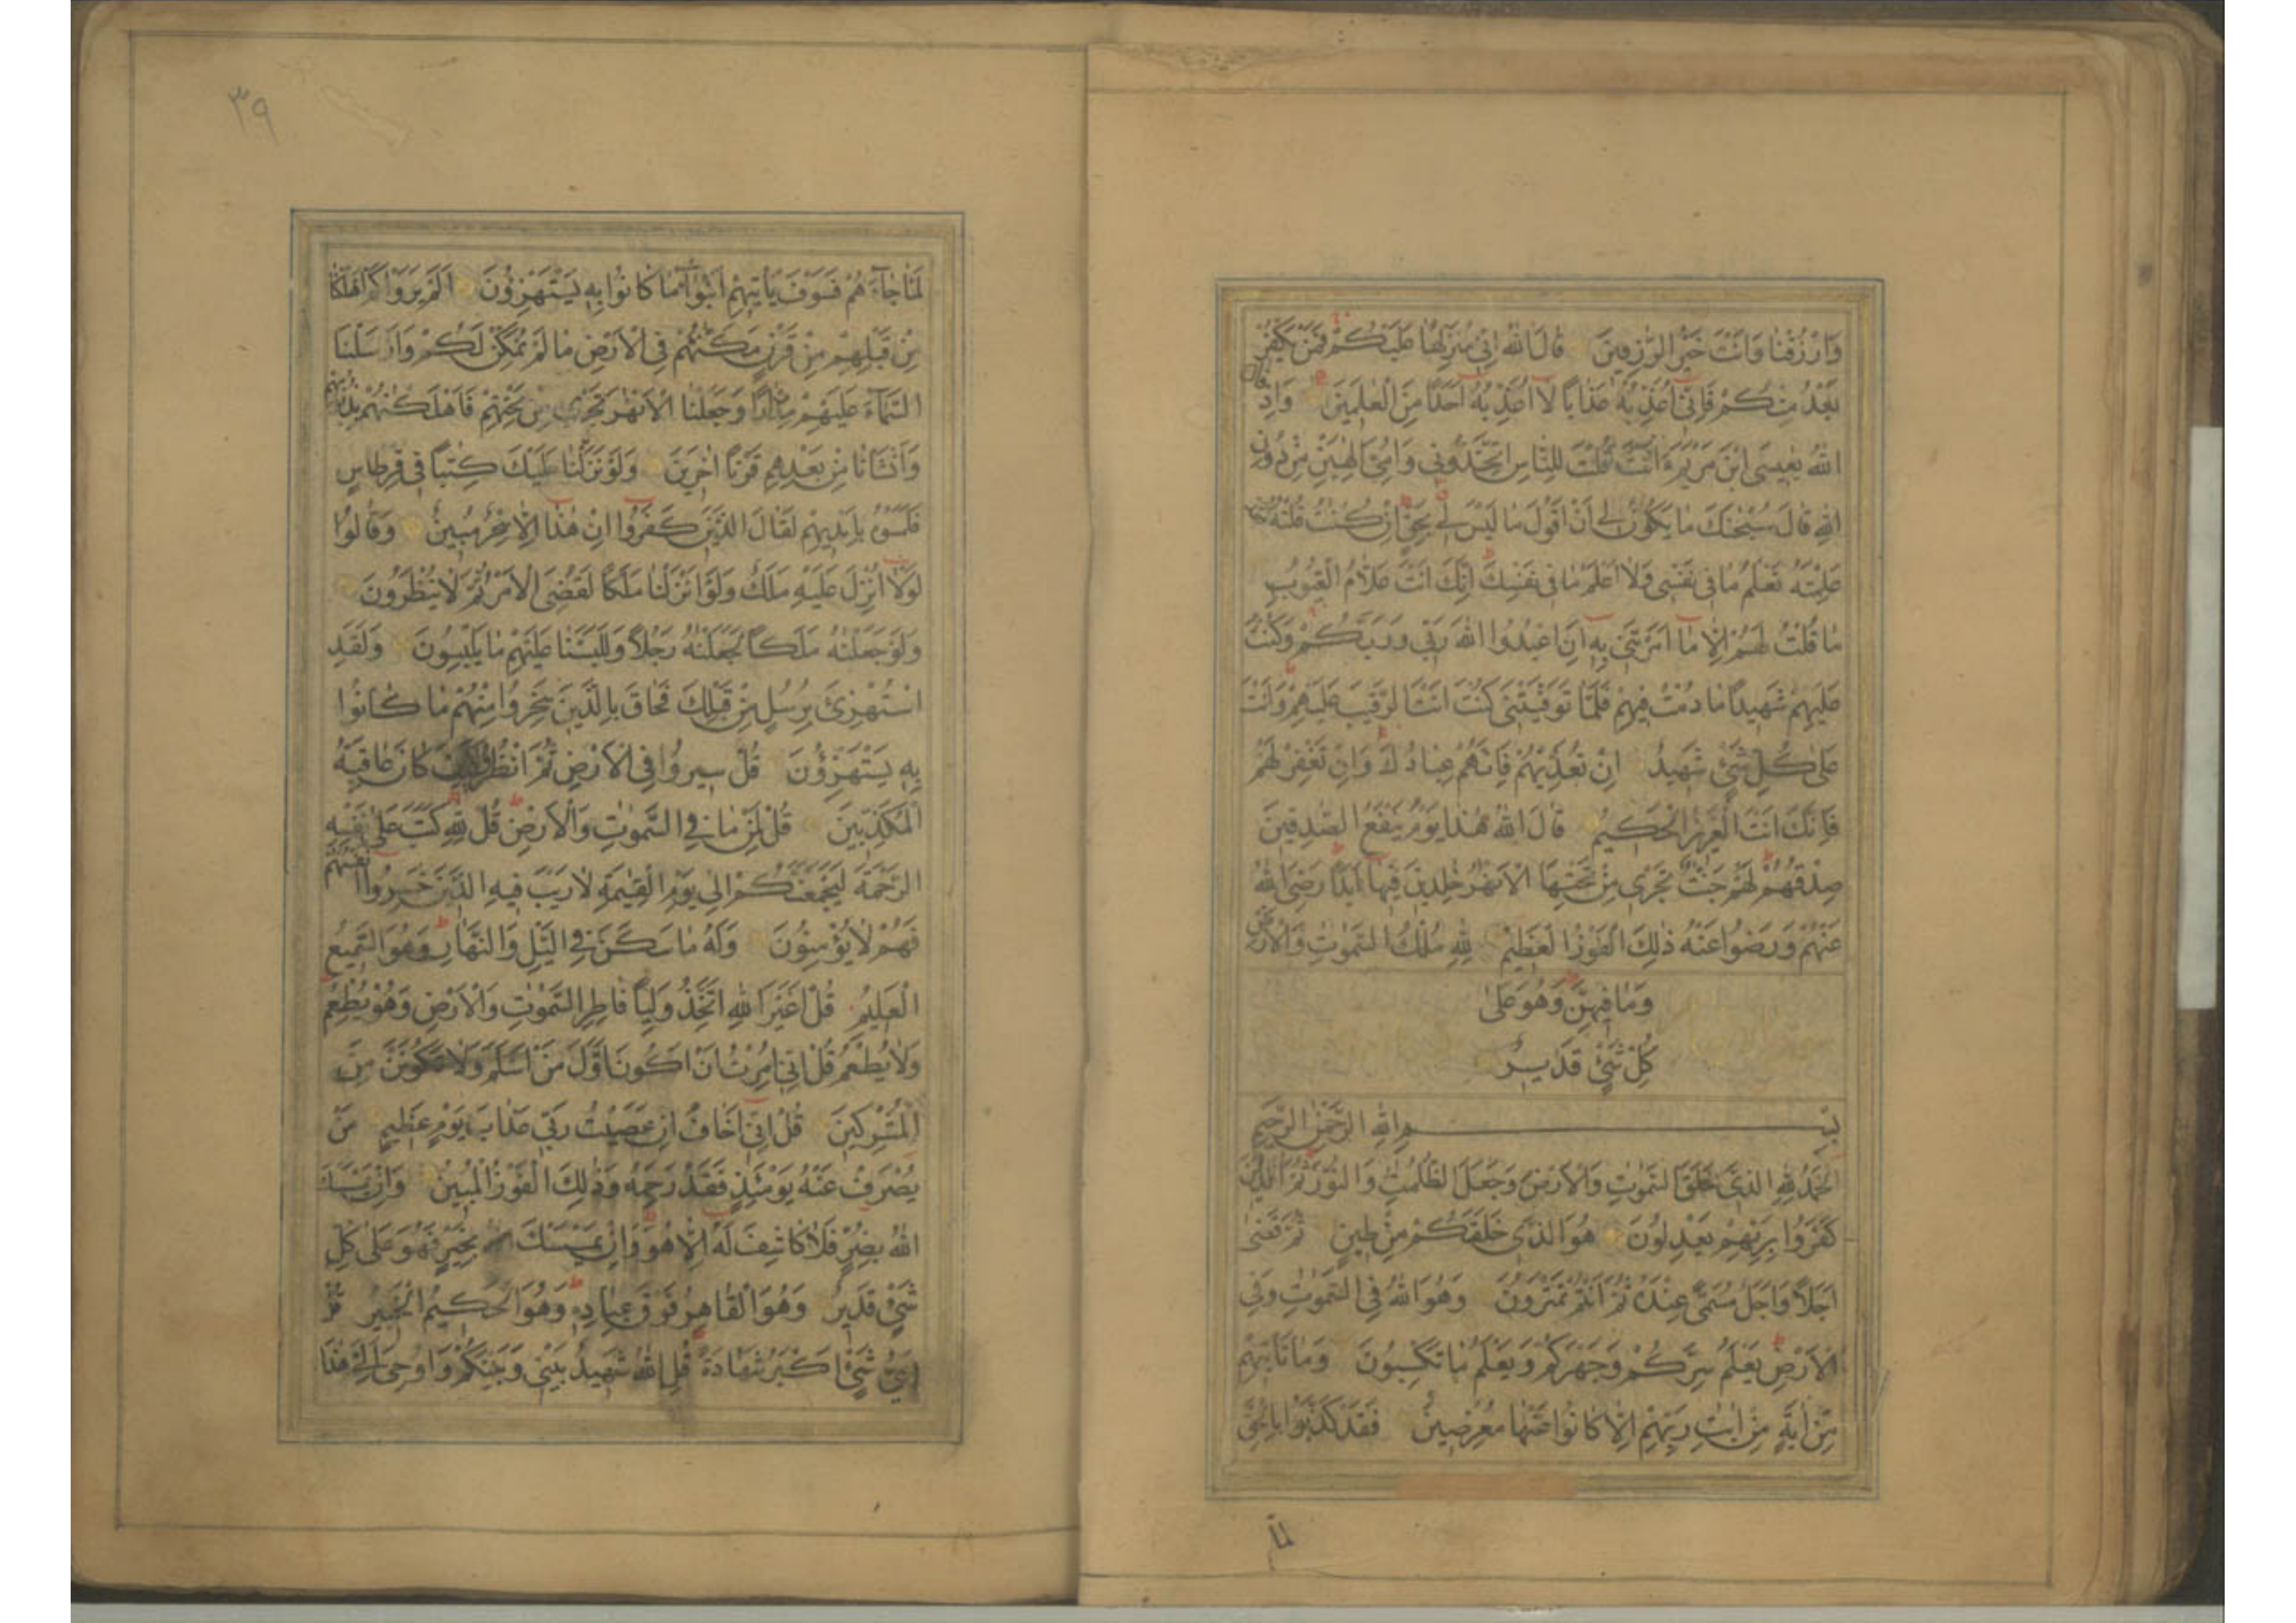 وَارْزُقْنَا وَاَنْتَ خَيْرُ الرّٰزِقِينَ قَالَ اللّٰهُ اِنِّي مُنَزِّلُهَا عَلَيْكُمْ فَمَنْ يَكْفُرْ
بَعْدُ مِنْكُمْ فَاِنِّي اُعَذِّبُهُ عَذَابًا لَا اُعَذِّبُهُ اَحَدًا مِنَ الْعٰلَمِينَ وَاِذْ قَالَ
اللّٰهُ يٰعِيسَى ابْنَ مَرْيَمَ ءَاَنْتَ قُلْتَ لِلنَّاسِ اتَّخِذُونِي وَاُمِّيَ اِلٰهَيْنِ مِنْ دُونِ
اللّٰهِ قَالَ سُبْحٰنَكَ مَا يَكُونُ لِي اَنْ اَقُولَ مَا لَيْسَ لِي بِحَقٍّ اِنْ كُنْتُ قُلْتُهُ فَقَدْ
عَلِمْتَهُ تَعْلَمُ مَا فِي نَفْسِي وَلَا اَعْلَمُ مَا فِي نَفْسِكَ اِنَّكَ اَنْتَ عَلَّامُ الْغُيُوبِ
مَا قُلْتُ لَهُمْ اِلَّا مَا اَمَرْتَنِي بِهِ اَنِ اعْبُدُوا اللّٰهَ رَبِّي وَرَبَّكُمْ وَكُنْتُ
عَلَيْهِمْ شَهِيدًا مَا دُمْتُ فِيهِمْ فَلَمَّا تَوَفَّيْتَنِي كُنْتَ اَنْتَ الرَّقِيبَ عَلَيْهِمْ وَاَنْتَ
عَلٰى كُلِّ شَيْءٍ شَهِيدٌ اِنْ تُعَذِّبْهُمْ فَاِنَّهُمْ عِبَادُكَ وَاِنْ تَغْفِرْ لَهُمْ
فَاِنَّكَ اَنْتَ الْعَزِيزُ الْحَكِيمُ قَالَ اللّٰهُ هٰذَا يَوْمُ يَنْفَعُ الصّٰدِقِينَ
صِدْقُهُمْ لَهُمْ جَنّٰتٌ تَجْرِي مِنْ تَحْتِهَا الْاَنْهٰرُ خٰلِدِينَ فِيهَا اَبَدًا رَضِيَ اللّٰهُ
عَنْهُمْ وَرَضُوا عَنْهُ ذٰلِكَ الْفَوْزُ الْعَظِيمُ لِلّٰهِ مُلْكُ السَّمٰوٰتِ وَالْاَرْضِ
وَمَا فِيهِنَّ وَهُوَ عَلٰى
كُلِّ شَيْءٍ قَدِيرٌ
بِسْمِ اللّٰهِ الرَّحْمٰنِ الرَّحِيمِ
الْحَمْدُ لِلّٰهِ الَّذِي خَلَقَ السَّمٰوٰتِ وَالْاَرْضَ وَجَعَلَ الظُّلُمٰتِ وَالنُّورَ ثُمَّ الَّذِينَ
كَفَرُوا بِرَبِّهِمْ يَعْدِلُونَ هُوَ الَّذِي خَلَقَكُمْ مِنْ طِينٍ ثُمَّ قَضٰى
اَجَلًا وَاَجَلٌ مُسَمًّى عِنْدَهُ ثُمَّ اَنْتُمْ تَمْتَرُونَ وَهُوَ اللّٰهُ فِي السَّمٰوٰتِ وَفِي
الْاَرْضِ يَعْلَمُ سِرَّكُمْ وَجَهْرَكُمْ وَيَعْلَمُ مَا تَكْسِبُونَ وَمَا تَاْتِيهِمْ
مِنْ اٰيَةٍ مِنْ اٰيٰتِ رَبِّهِمْ اِلَّا كَانُوا عَنْهَا مُعْرِضِينَ فَقَدْ كَذَّبُوا بِالْحَقِّ
لَمَّا
٣٩
لَمَّا جَاءَهُمْ فَسَوْفَ يَاْتِيهِمْ اَنْبٰٓؤُا مَا كَانُوا بِهِ يَسْتَهْزِؤُنَ اَلَمْ يَرَوْا كَمْ اَهْلَكْنَا
مِنْ قَبْلِهِمْ مِنْ قَرْنٍ مَكَّنّٰهُمْ فِي الْاَرْضِ مَا لَمْ نُمَكِّنْ لَكُمْ وَاَرْسَلْنَا
السَّمَاءَ عَلَيْهِمْ مِدْرَارًا وَجَعَلْنَا الْاَنْهٰرَ تَجْرِي مِنْ تَحْتِهِمْ فَاَهْلَكْنٰهُمْ بِذُنُوبِهِمْ
وَاَنْشَاْنَا مِنْ بَعْدِهِمْ قَرْنًا اٰخَرِينَ وَلَوْ نَزَّلْنَا عَلَيْكَ كِتٰبًا فِي قِرْطَاسٍ
فَلَمَسُوهُ بِاَيْدِيهِمْ لَقَالَ الَّذِينَ كَفَرُوا اِنْ هٰذَا اِلَّا سِحْرٌ مُبِينٌ وَقَالُوا
لَوْلَا اُنْزِلَ عَلَيْهِ مَلَكٌ وَلَوْ اَنْزَلْنَا مَلَكًا لَقُضِيَ الْاَمْرُ ثُمَّ لَا يُنْظَرُونَ
وَلَوْ جَعَلْنٰهُ مَلَكًا لَجَعَلْنٰهُ رَجُلًا وَلَلَبَسْنَا عَلَيْهِمْ مَا يَلْبِسُونَ وَلَقَدِ
اسْتُهْزِئَ بِرُسُلٍ مِنْ قَبْلِكَ فَحَاقَ بِالَّذِينَ سَخِرُوا مِنْهُمْ مَا كَانُوا
بِهِ يَسْتَهْزِؤُنَ قُلْ سِيرُوا فِي الْاَرْضِ ثُمَّ انْظُرُوا كَيْفَ كَانَ عَاقِبَةُ
الْمُكَذِّبِينَ قُلْ لِمَنْ مَا فِي السَّمٰوٰتِ وَالْاَرْضِ قُلْ لِلّٰهِ كَتَبَ عَلٰى نَفْسِهِ
الرَّحْمَةَ لَيَجْمَعَنَّكُمْ اِلٰى يَوْمِ الْقِيٰمَةِ لَا رَيْبَ فِيهِ الَّذِينَ خَسِرُوا اَنْفُسَهُمْ
فَهُمْ لَا يُؤْمِنُونَ وَلَهُ مَا سَكَنَ فِي الَّيْلِ وَالنَّهَارِ وَهُوَ السَّمِيعُ
الْعَلِيمُ قُلْ اَغَيْرَ اللّٰهِ اَتَّخِذُ وَلِيًّا فَاطِرِ السَّمٰوٰتِ وَالْاَرْضِ وَهُوَ يُطْعِمُ
وَلَا يُطْعَمُ قُلْ اِنِّي اُمِرْتُ اَنْ اَكُونَ اَوَّلَ مَنْ اَسْلَمَ وَلَا تَكُونَنَّ مِنَ
الْمُشْرِكِينَ قُلْ اِنِّي اَخَافُ اِنْ عَصَيْتُ رَبِّي عَذَابَ يَوْمٍ عَظِيمٍ مَنْ
يُصْرَفْ عَنْهُ يَوْمَئِذٍ فَقَدْ رَحِمَهُ وَذٰلِكَ الْفَوْزُ الْمُبِينُ وَاِنْ يَمْسَسْكَ
اللّٰهُ بِضُرٍّ فَلَا كَاشِفَ لَهُ اِلَّا هُوَ وَاِنْ يَمْسَسْكَ بِخَيْرٍ فَهُوَ عَلٰى كُلِّ
شَيْءٍ قَدِيرٌ وَهُوَ الْقَاهِرُ فَوْقَ عِبَادِهِ وَهُوَ الْحَكِيمُ الْخَبِيرُ قُلْ
اَيُّ شَيْءٍ اَكْبَرُ شَهَادَةً قُلِ اللّٰهُ شَهِيدٌ بَيْنِي وَبَيْنَكُمْ وَاُوحِيَ اِلَيَّ هٰذَا